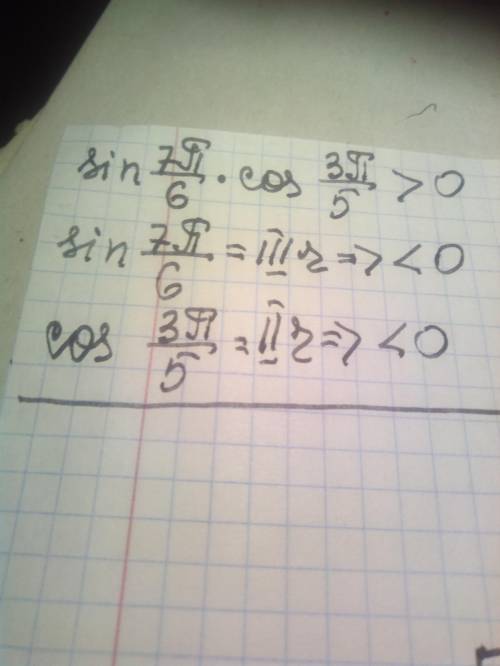 sin 7π/6 · cos 3π/5 > 0
sin 7π/6 = III ч => < 0
cos 3π/5 = II ч => < 0